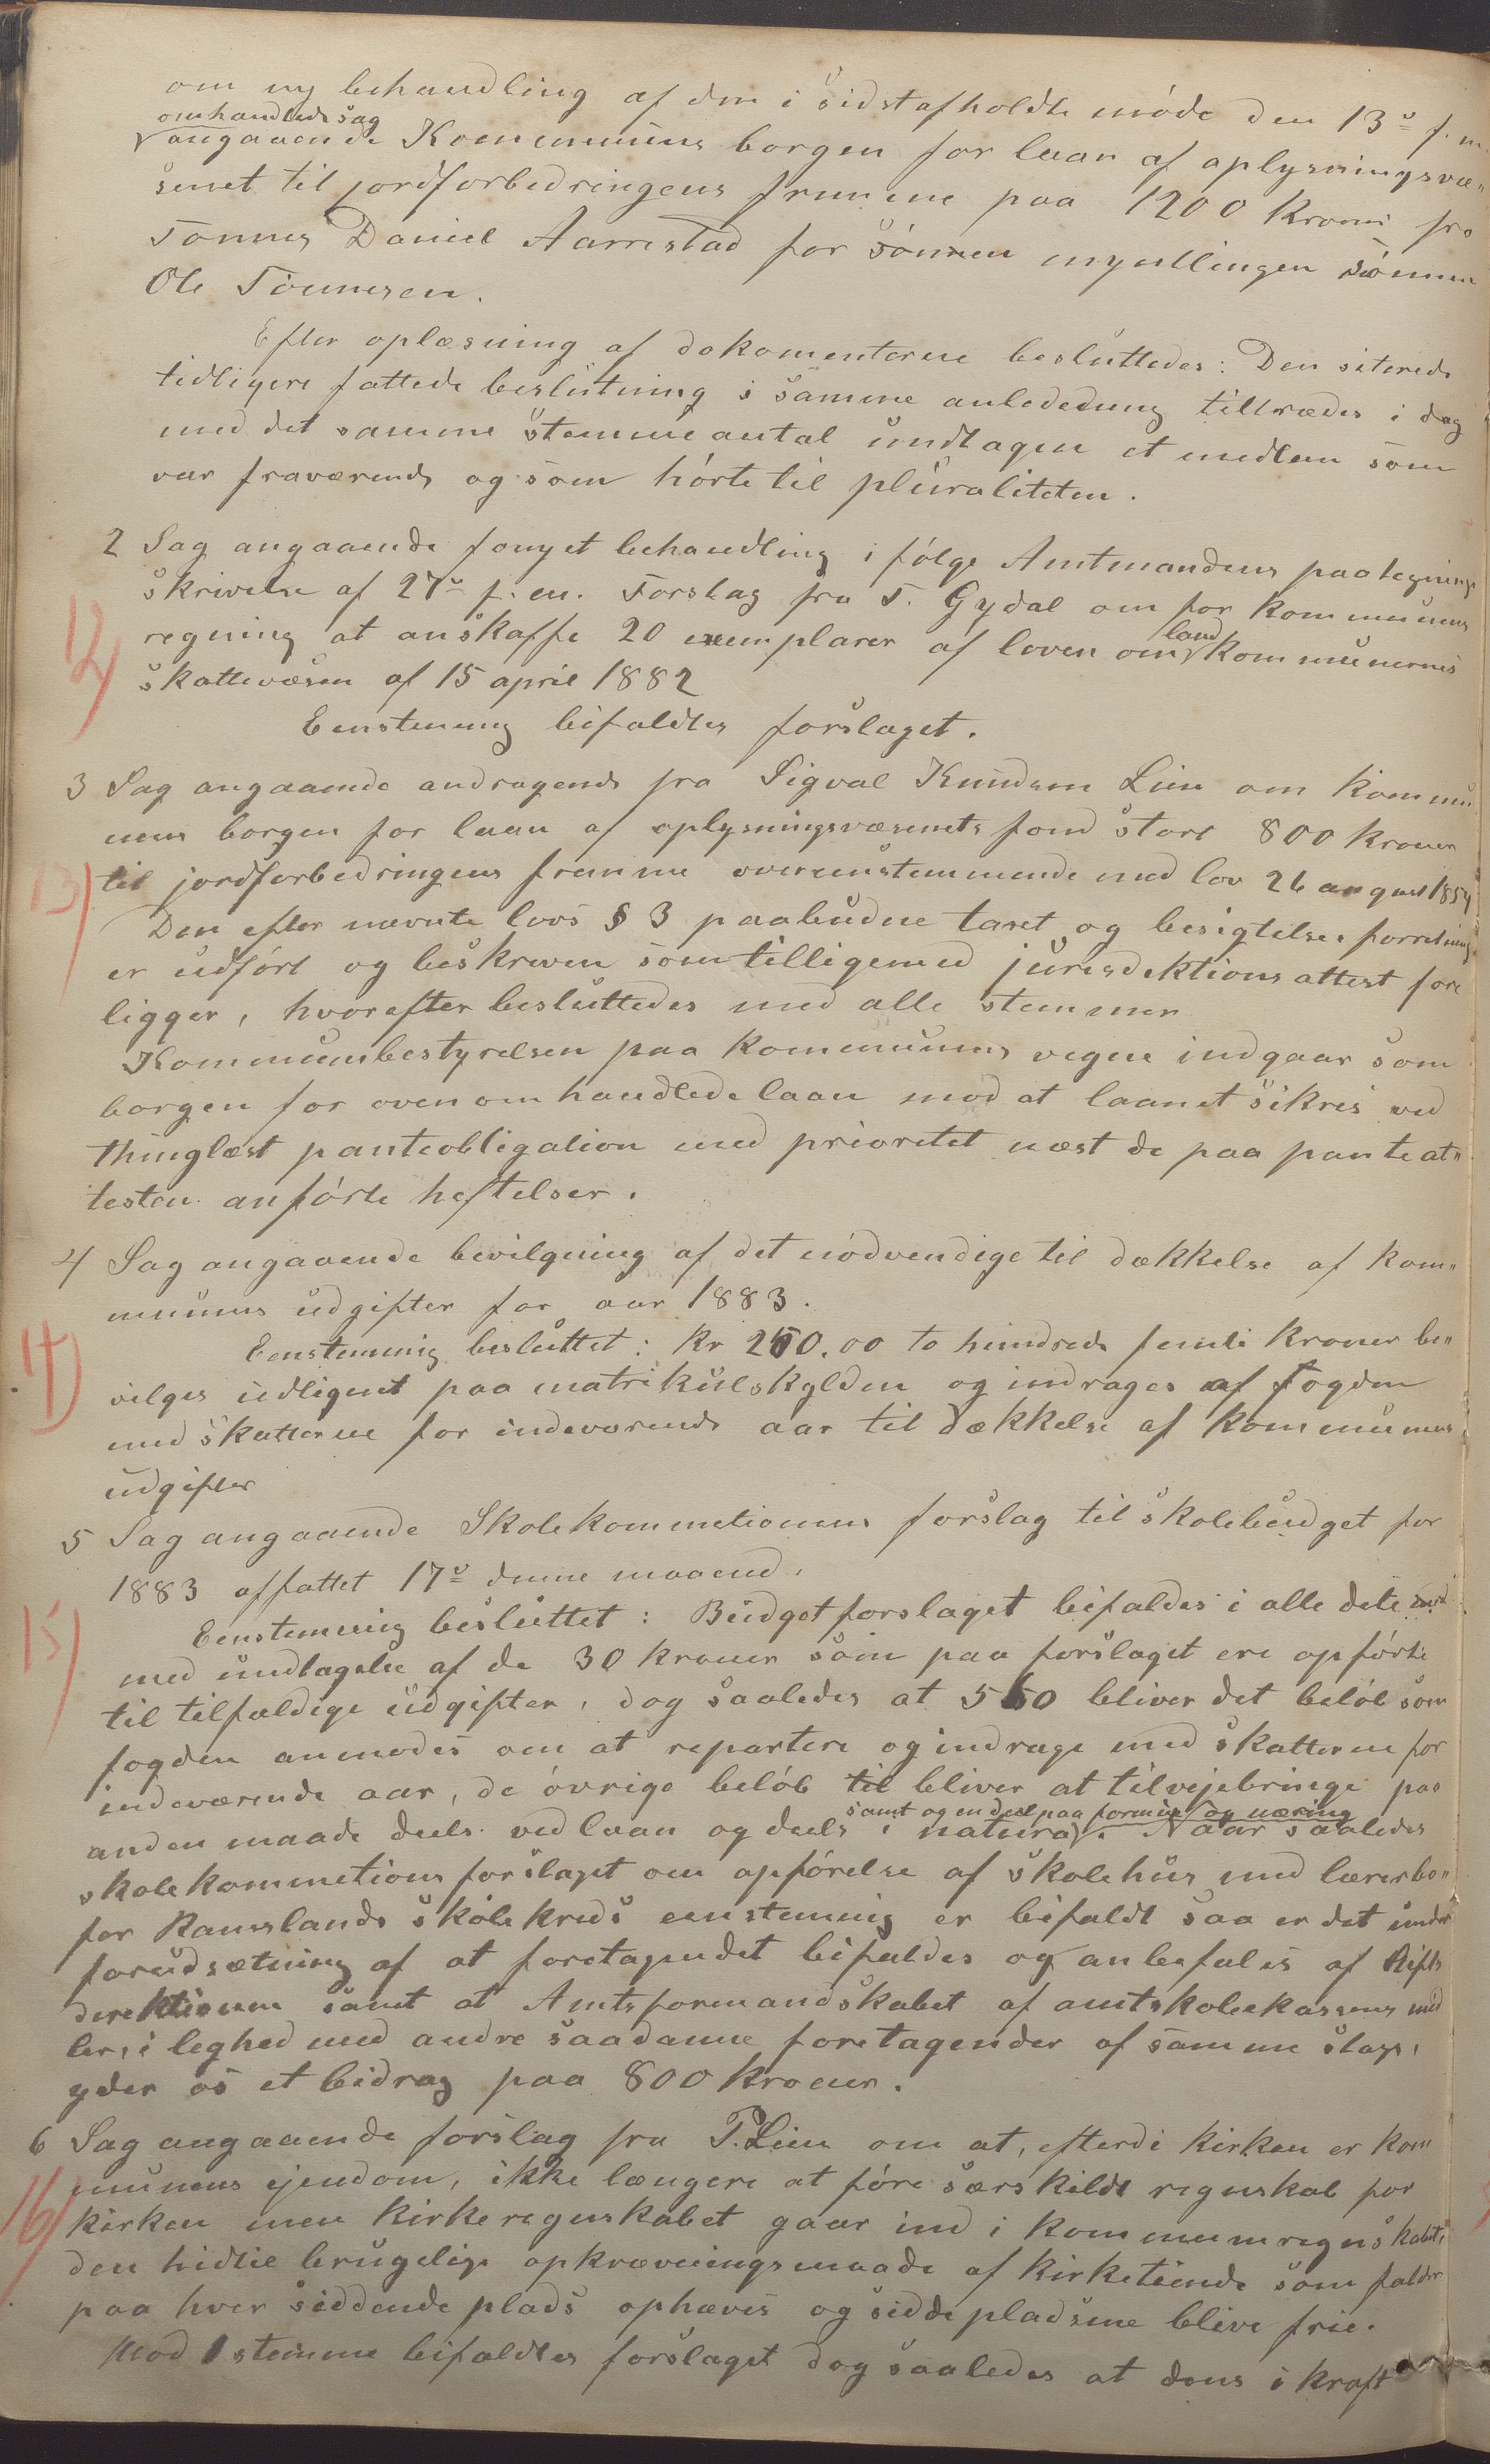 om ny behandling af den i sidst afholdte møde den 13de f. m.
omhandlede sag
angaaende Kommunens borgen for laan af oplysningsvæ„
senet til jordforbedringens fremme paa 1200 Kroner fra
Tønnes Daniel Aarrestad for sønnen myndlingen sønnen
Ole Tønnesen.
Efter oplæsning af dokomenterne besluttedes: Den siterede
tidligere fattede beslutning i samme anlededning tiltrædes i dag
med det samme stemmeantal undtagen et medlem som
var fraværende og som hørte til pluraliteten.
2 Sag angaaende fonyet behandling i følge Amtmandens paategnings
skrivelse af 27de f. m. Forslag fra T. Gydal om for kommunens
12)
regning at anskaffe 20 exemplarer af loven om land kommunernes
skattevæsen af 15 april 1882
Eenstemmig bifaldtes forslaget.
3 Sag angaaende andragende fra Sigval Knudsen Lien om kommu
nens borgen for laan af oplysningsvæsenets fond stort 800 kroner
13)
til jordforbedringens fremme overensstemmende med lov 26 august 1854
Den efter nævnte lovs § 3 paabudne taxt og besigtelses forretning
er udført og beskreven som tilligemed jurisdektionsattest fore
ligger, hvorefter besluttedes med alle stemmer
Kommunbestyrelsen paa Kommunens vegne indgaar som
borgen for ovenomhandlede laan mod at laanet sikres ved
thinglæst panteobligation med prioretet næst de paa panteat„
testen anførte heftelser.
4 Sag angaaende bevilgning af det nødvendige til dækkelse af kom„
munens udgifter for aar 1883.
14)
Eenstemmig besluttet: Kr 250.00 to hundrede femti Kroner be„
vilges udlignet paa matrikulskylden og inddrages af fogden
med skatterne for indeværende aar til dækkelse af kommunens
udgifter
5 Sag angaaende Skolekommetionens forslag til skolebudget for
1883 affattet 17de denne maaned.
15)
Eenstemmig besluttet: Budgetforslaget bifaldes i alle dele
med undtagelse af de 30 kroner som paa forslaget ere opførte
til tilfældige udgifter, dog saaledes at 550 bliver det beløb som
fogden anmodes om at repartere og inddrage med skatterne for
indeværende aar, de øvrige beløb til bliver at tilvejebringe paa
samt og en deel paa formue og næring
anden maade deels ved laan og deels i natura. Naar saaledes
skolekommetions forslaget om opførelse af skolehus med lærerbo„
for Ramslands skolekreds eenstemmig er bifaldt saa er det under
forudsætning af at foretagendet bifaldes og anbefales af stifts
direktionen samt at Amtsformandskabet af amtskolekassens mid
ler, i leghed med andre saadanne foretagender af samme slags,
yder os et bidrag paa 800 kroner.
6 Sag angaaende forslag fra T. Lien om at, efterdi kirken er kom
munens ejendom, ikke længere at føre særskildt regnskab for
16)
kirken men kirkeregnskabet gaar ind i kommunregnskabet,
den hidtil brugelige opkrævningsmaade af kirketiende som falder
paa hver siddende plads ophæves og siddepladsene blive frie.
Mod 1 stemme bifaldtes forslaget dog saaledes at dens i kraft